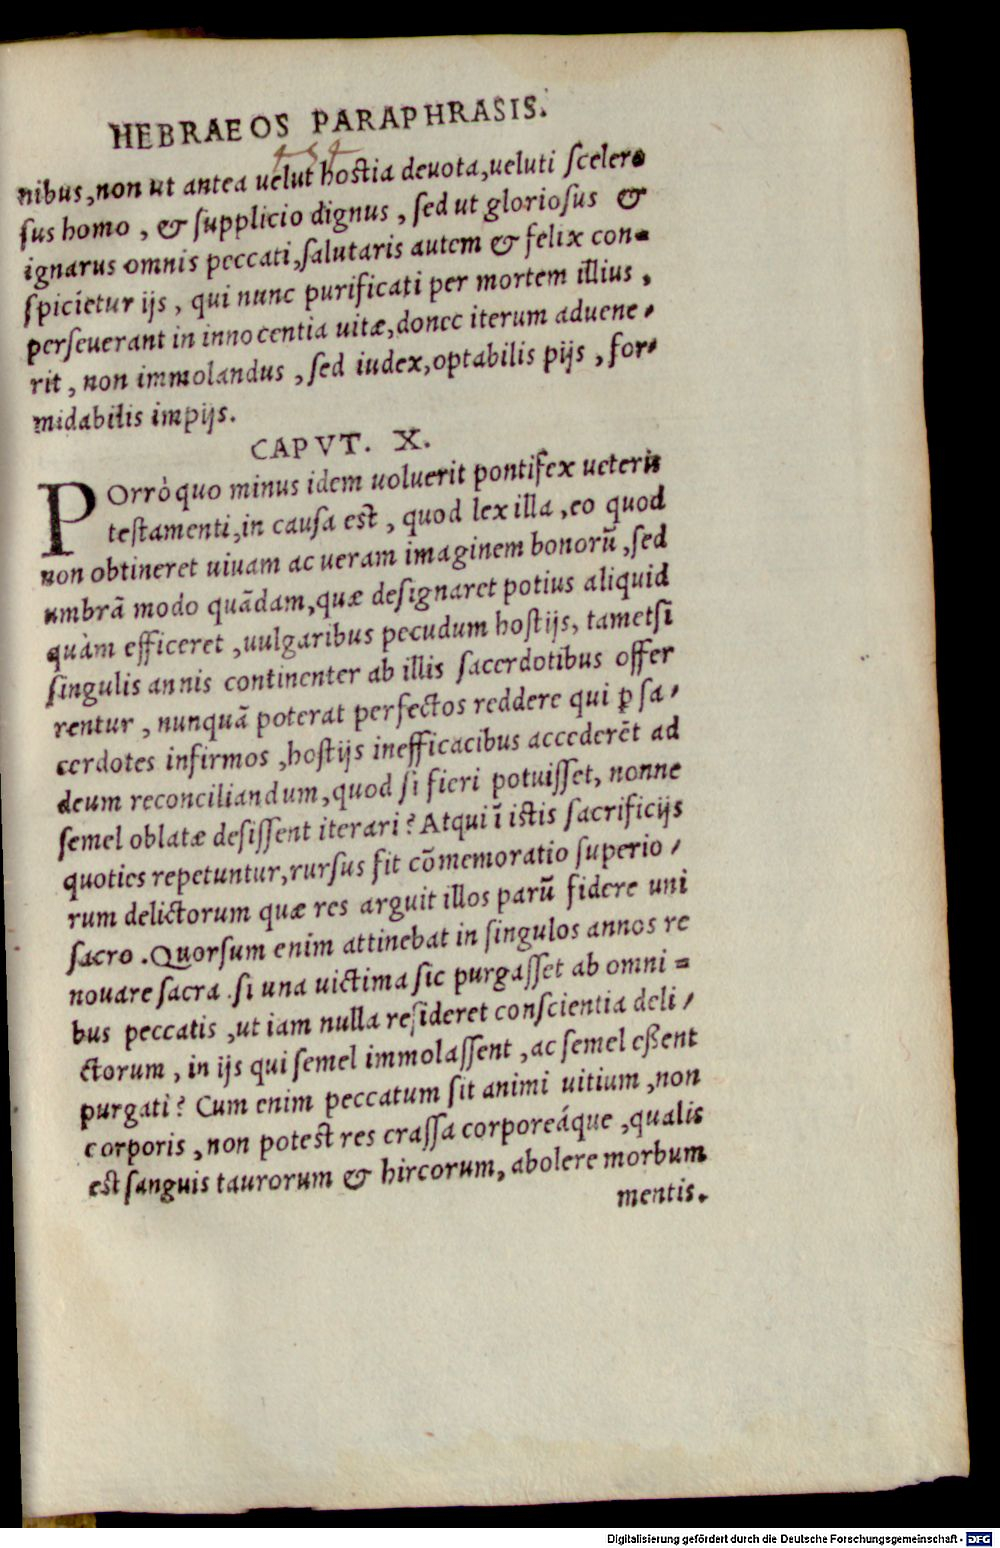 HEBRAEOS PARAPHRASIS.
454
nibus, non ut antea uelut hostia deuota, ueluti scelero
sus homo, & supplicio dignus, sed ut gloriosus &
ignarus omnis peccati, salutaris autem & felix con-
spicietur ijs, qui nunc purificati per mortem illius,
perseuerant in innocentia uitæ, donec iterum aduene-
rit, non immolandus, sed iudex, optabilis pijs, for-
midabilis impijs.
CAPVT. X.
POrrò quo minus idem uoluerit pontifex ueteris
testamenti, in causa est, quod lex illa, eo quod
non obtineret uiuam ac ueram imaginem bonorũ, sed
umbrã modo quãdam, quæ designaret potius aliquid
quàm efficeret, uulgaribus pecudum hostijs, tametsi
singulis annis continenter ab illis sacerdotibus offer
rentur, nunquã poterat perfectos reddere qui ꝑ sa-
cerdotes infirmos, hostijs inefficacibus accederẽt ad
deum reconciliandum, quod si fieri potuisset, nonne
semel oblatæ desissent iterari? Atqui ĩ istis sacrificijs
quoties repetuntur, rursus fit cõmemoratio superio-
rum delictorum quæ res arguit illos parũ fidere uni
sacro. Quorsum enim attinebat in singulos annos re
nouare sacra. si una uictima sic purgasset ab omni-
bus peccatis, ut iam nulla resideret conscientia deli-
ctorum, in ijs qui semel immolassent, ac semel eßent
purgati? Cum enim peccatum sit animi uitium, non
corporis, non potest res crassa corporeáque, qualis
est sanguis taurorum & hircorum, abolere morbum
mentis.
Digitalisierung gefördert durch die Deutsche Forschungsgemeinschaft - DFG